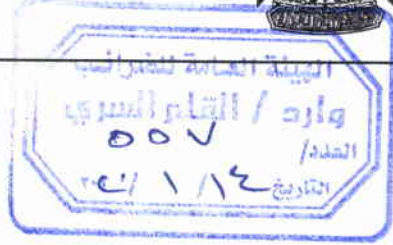 الهيئة العامة للضرائب
وارد / القلم السري
العدد/ ٥٥٧
التاريخ ١٤/ ١ /